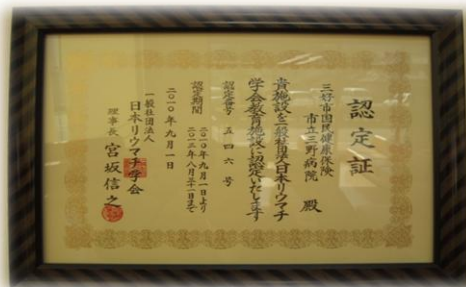 認定証
三好市国民健康保険
市立三野病院 殿
貴施設を一般社団法人日本リウマチ
学会教育施設に認定いたします
認定番号 五四六号
認定期間 二〇一〇年九月一日より
二〇一三年八月三十一日まで
二〇一〇年九月一日
一般社団法人
日本リウマチ学会
理事長 宮坂信之